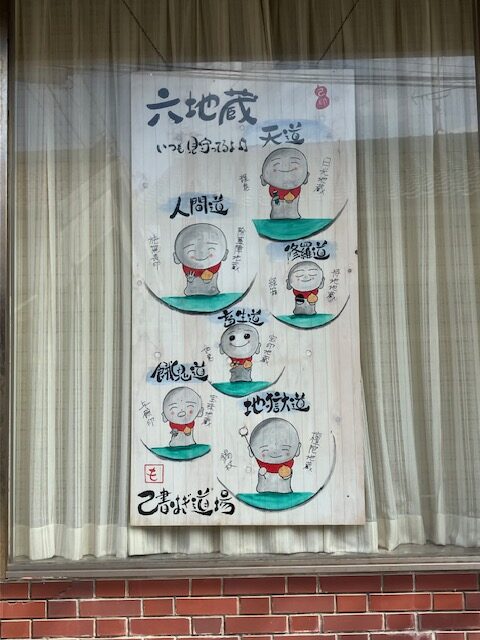 六地蔵
いつも見守ってるよ
天道
日光地蔵
人間道
除蓋障地蔵
施無畏印
修羅道
持地地蔵
畜生道
宝印地蔵
餓鬼道
宝珠地蔵
地獄道
檀陀地蔵
錫杖
も
己書はぎ道場